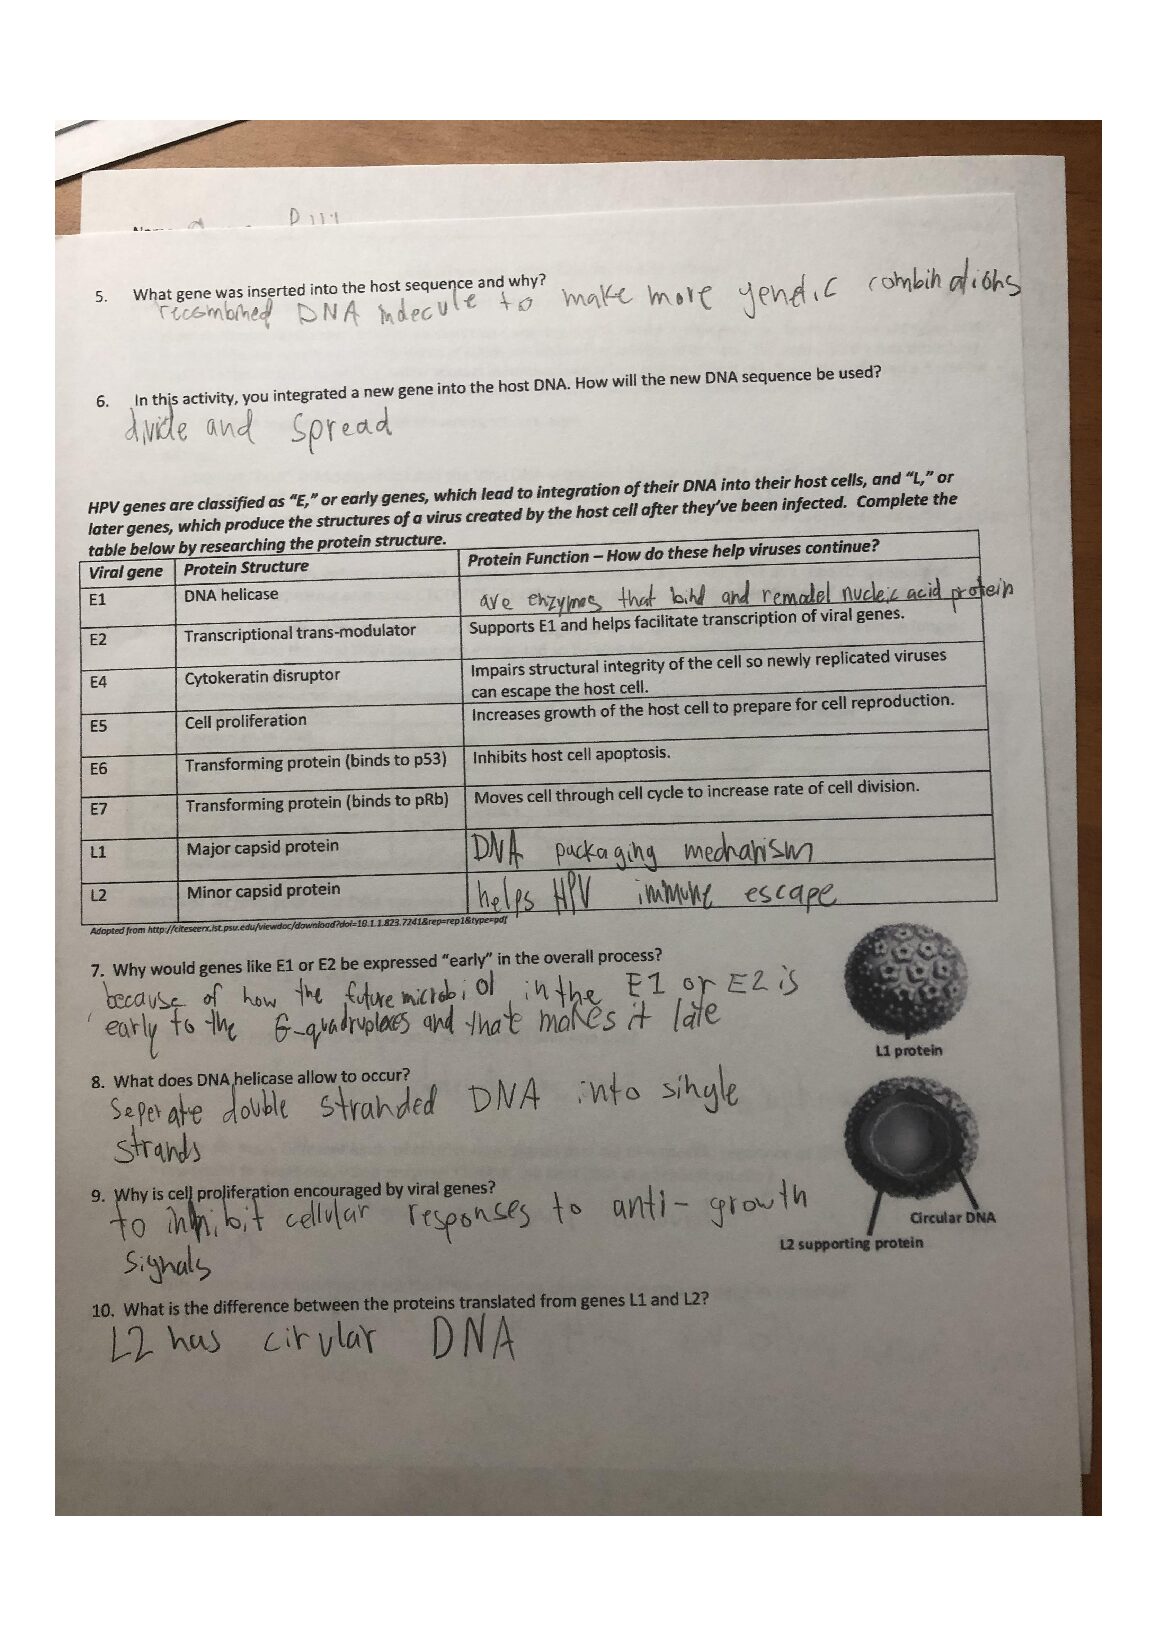 5. What gene was inserted into the host sequence and why?
recombined DNA molecule to make more genetic combinations
6. In this activity, you integrated a new gene into the host DNA. How will the new DNA sequence be used?
divide and spread
HPV genes are classified as “E,” or early genes, which lead to integration of their DNA into their host cells, and “L,” or
later genes, which produce the structures of a virus created by the host cell after they’ve been infected. Complete the
table below by researching the protein structure.
Viral gene Protein Structure Protein Function – How do these help viruses continue?
E1 DNA helicase are enzymes that bind and remodel nucleic acid protein
E2 Transcriptional trans-modulator Supports E1 and helps facilitate transcription of viral genes.
E4 Cytokeratin disruptor Impairs structural integrity of the cell so newly replicated viruses
can escape the host cell.
E5 Cell proliferation Increases growth of the host cell to prepare for cell reproduction.
E6 Transforming protein (binds to p53) Inhibits host cell apoptosis.
E7 Transforming protein (binds to pRb) Moves cell through cell cycle to increase rate of cell division.
L1 Major capsid protein DNA packaging mechanism
L2 Minor capsid protein helps HPV immune escape
Adapted from http://citeseerx.ist.psu.edu/viewdoc/download?doi=10.1.1.823.7241&rep=rep1&type=pdf
7. Why would genes like E1 or E2 be expressed “early” in the overall process?
because of how the future microbiol in the E1 or E2 is
early to the G-quadruplexes and that makes it late
L1 protein
8. What does DNA helicase allow to occur?
Seperate double stranded DNA into single
strands
9. Why is cell proliferation encouraged by viral genes?
to inhibit cellular responses to anti-growth
signals
Circular DNA
L2 supporting protein
10. What is the difference between the proteins translated from genes L1 and L2?
L2 has cirular DNA